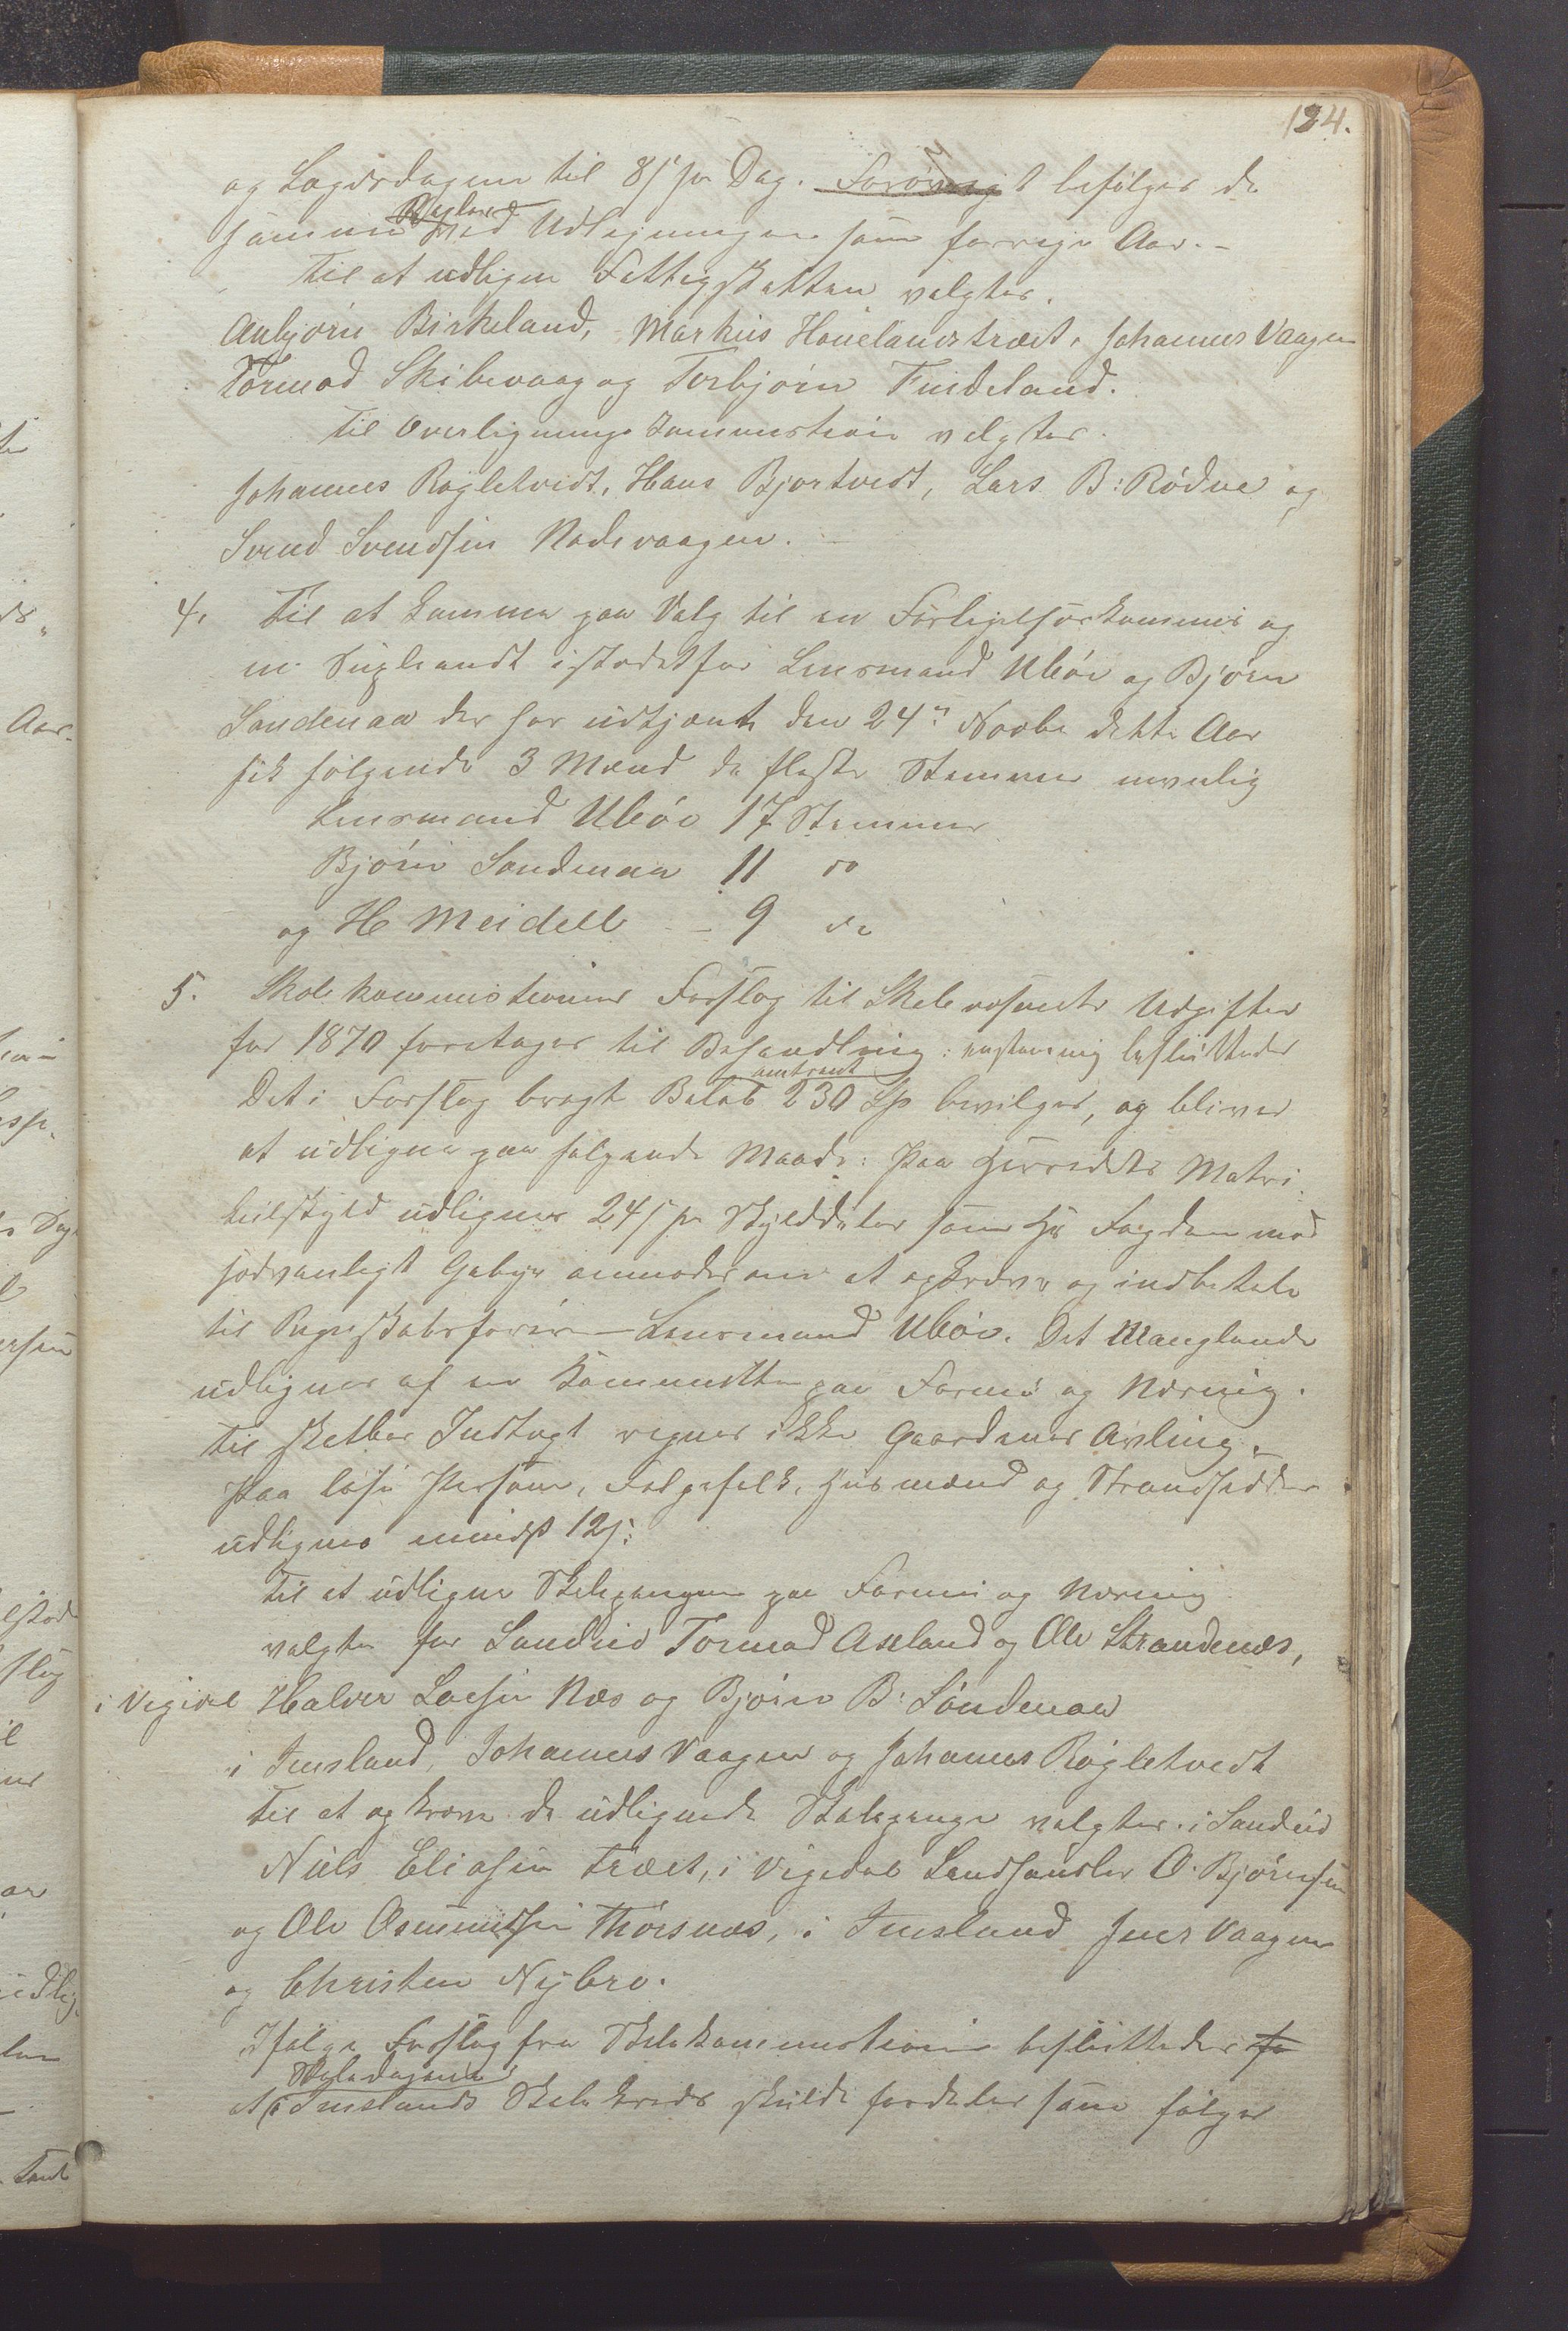 124.
og Lægdsdagene til 8 s pr Dag. Forøvrigt befølges de
samme Regler ved Udligningen som forrige Aar. –
Til at udligne Fattigskatten valgtes.
Anbjørn Birkeland, Markus Houelandstræet, Johannes Vaagen
Tormod Skibevaag og Torbjørn Fuideland.
Til Overligningskommission valgtes.
Johannes Røgletvedt, Hans Bjortvedt, Lars B: Rødne og
Svend Svendsen Nadevaagen.
4. Til at komme paa Valg til en Forligelseskommissær og
en Supleandt istedetfor Lensmand Ubøe og Bjørn
Sandenaa der har udtjent den 24de Novbr dette Aar
fik følgende 3 Mænd de fleste Stemmer nemlig
Lensmand Ubøe 17 Stemmer
Bjørn Sandenaa 11 do
og H Meidell – 9 do
5. Skolekommissionens Forslag til Skolevæsenets Udgifter
for 1870 foretages til Behandling: enstemmig besluttedes
Det i Forslag bragte Beløb omtrent 230 Sp bevilges, og bliver
at udligne paa følgende Maade: Paa Herredets Matri
kulskyld udlignes 24 s pr Skylddaler som Hr Fogden mod
sedvanligt Gebyr anmodes om at opkræve og indbetale
til Regnskabsfører Lensmand Ubøe. Det Manglende
udlignes af en Kommitte paa Formue og Næring.
Til skatbar Indtægt regnes ikke Gaardenes Avling.
Paa løse Personer, Følgefolk, Husmænd og Strandsiddere
udlignes mindst 12 s:
Til at udligne Skolepengene paa Formue og Næring
valgtes for Sandeid Tormod Axeland og Ole Strandenæs,
i Vigedal Halvor Larsen Næs og Bjørn B: Sandenaa
i Imsland, Johannes Vaagen og Johannes Røgletvedt
Til at opkræve de udlignede Skolepenge valgtes. i Sandeid
Niels Eliasen Træet, i Vigedal Landhandler O. Bjørnsen
og Ole Osmundsen Thorsnæs, i Imsland Jens Vaagen
og Christen Nybro.
Ifølge Forslag fra Skolekommissionen besluttedes
at Skoledagene i Imslands Skolekreds skulde fordeles som følger